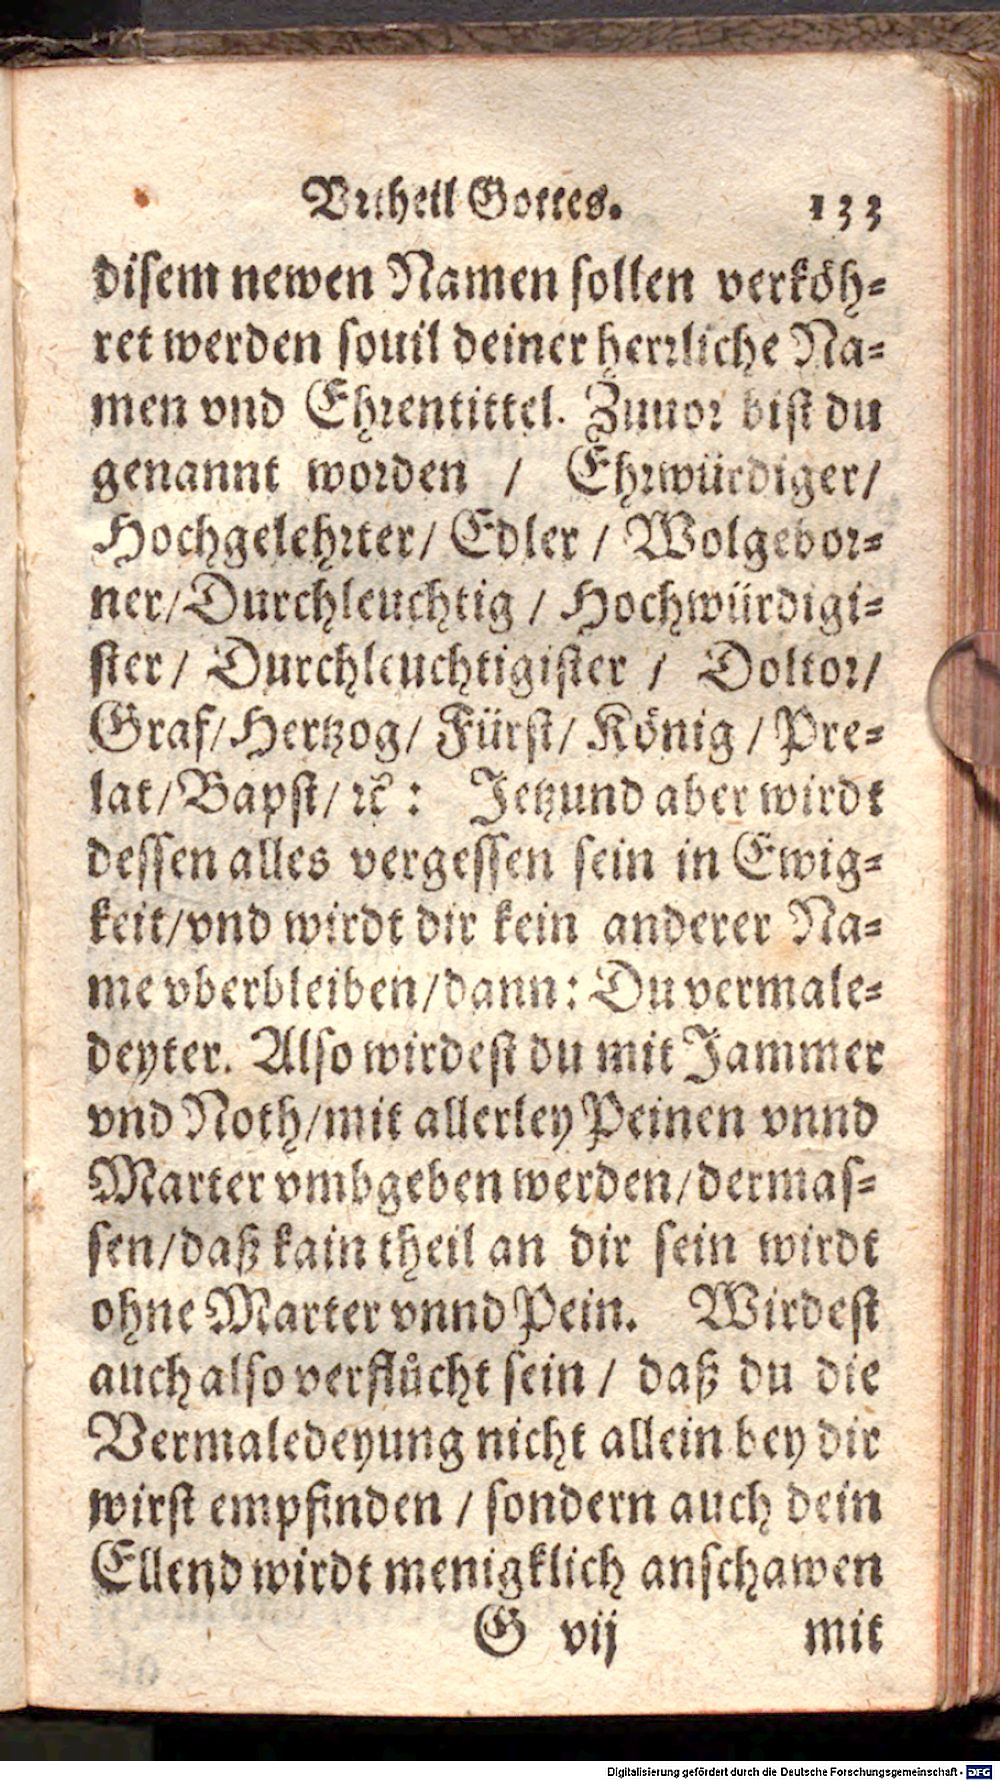 Vrtheil Gottes. 133
disem newen Namen sollen verköh-
ret werden souil deiner herrliche Na-
men vnd Ehrentittel. Zuuor bist du
genannt worden / Ehrwürdiger/
Hochgelehrter/ Edler / Wolgebor-
ner/Durchleuchtig / Hochwürdigi-
ster/ Durchleuchtigister / Doltor/
Graf/Hertzog/ Fürst/ König / Pre-
lat/Bapst/ ꝛc̃ : Jetzund aber wirdt
dessen alles vergessen sein in Ewig-
keit/vnd wirdt dir kein anderer Na-
me vberbleiben/dann: Du vermale-
deyter. Also wirdest du mit Jammer
vnd Noth/mit allerley Peinen vnnd
Marter vmbgeben werden/dermas-
sen/daß kain theil an dir sein wirdt
ohne Marter vnnd Pein. Wirdest
auch also verflůcht sein / daß du die
Vermaledeyung nicht allein bey dir
wirst empfinden / sondern auch dein
Ellend wirdt menigklich anschawen
G vij mit
Digitalisierung gefördert durch die Deutsche Forschungsgemeinschaft - DFG